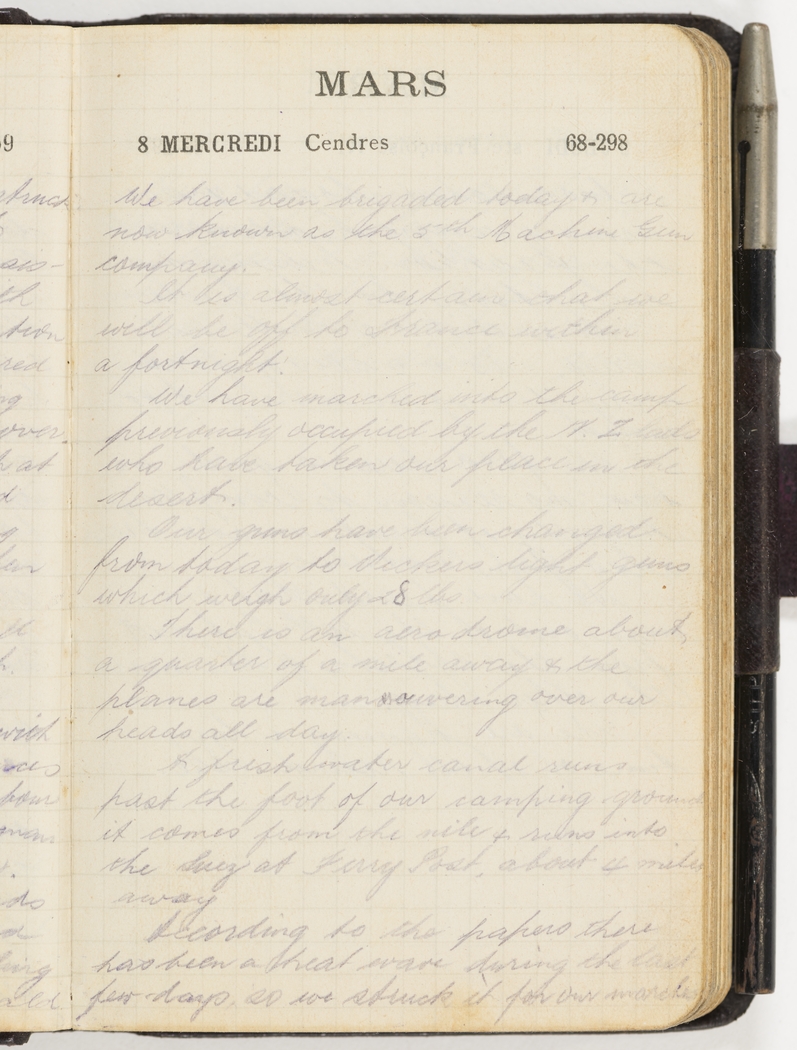 MARS
8 MERCREDI Cendres 68-298
We have been brigaded today & are
now known as the 5th Machine Gun
company.
It is almost certain that we
will be off to France within
a fortnight.
We have marched into the camp
previously occupied by the N. Z. lads
who have taken our place in the
desert.
Our guns have been changed
from today to Vickers light guns
which weigh only 28 lbs.
There is an aerodrome about
a quarter of a mile away & the
planes are manoeuvering over our
heads all day.
A fresh water canal runs
past the foot of our camping ground
it comes from the nile & runs into
the Suez at Ferry Post, about 4 miles
away
According to the papers there
has been a heat wave during the last
few days, so we struck it for our march